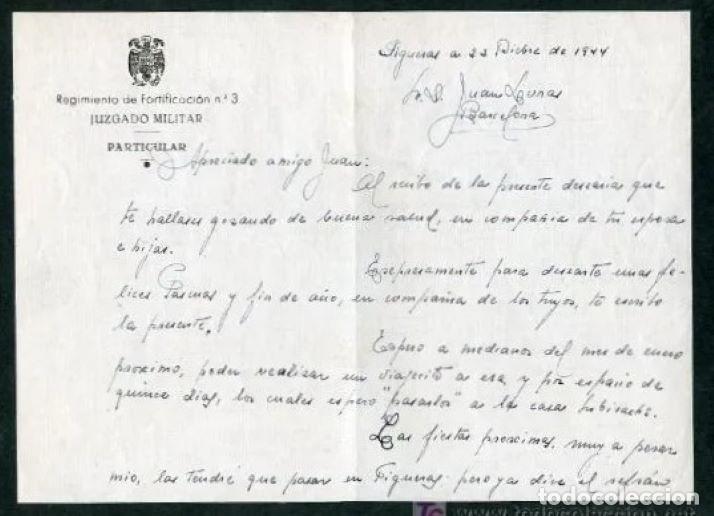 Regimiento de Fortificación n.º 3
JUZGADO MILITAR
PARTICULAR
Figueras a 22 Dicbre de 1944
Sr. D. Juan
Barcelona
Apreciado amigo Juan:
Al recibo de la presente desearia que
te hallases gozando de buena salud, en compañia de tu esposa
e hijas.
Expresamente para desearte unas fe-
lices Pascuas y fin de año, en compañia de los tuyos, te escribo
la presente.
Espero a medianos del mes de enero
proximo, poder realizar un viajecito a esa y por espacio de
quince dias, los cuales espero "pasarlos" a la casa
Las fiestas proximas, muy a pesar
mio, las tendré que pasar en Figueras: pero ya dice el refrán
todocoleccion
todocoleccion.net